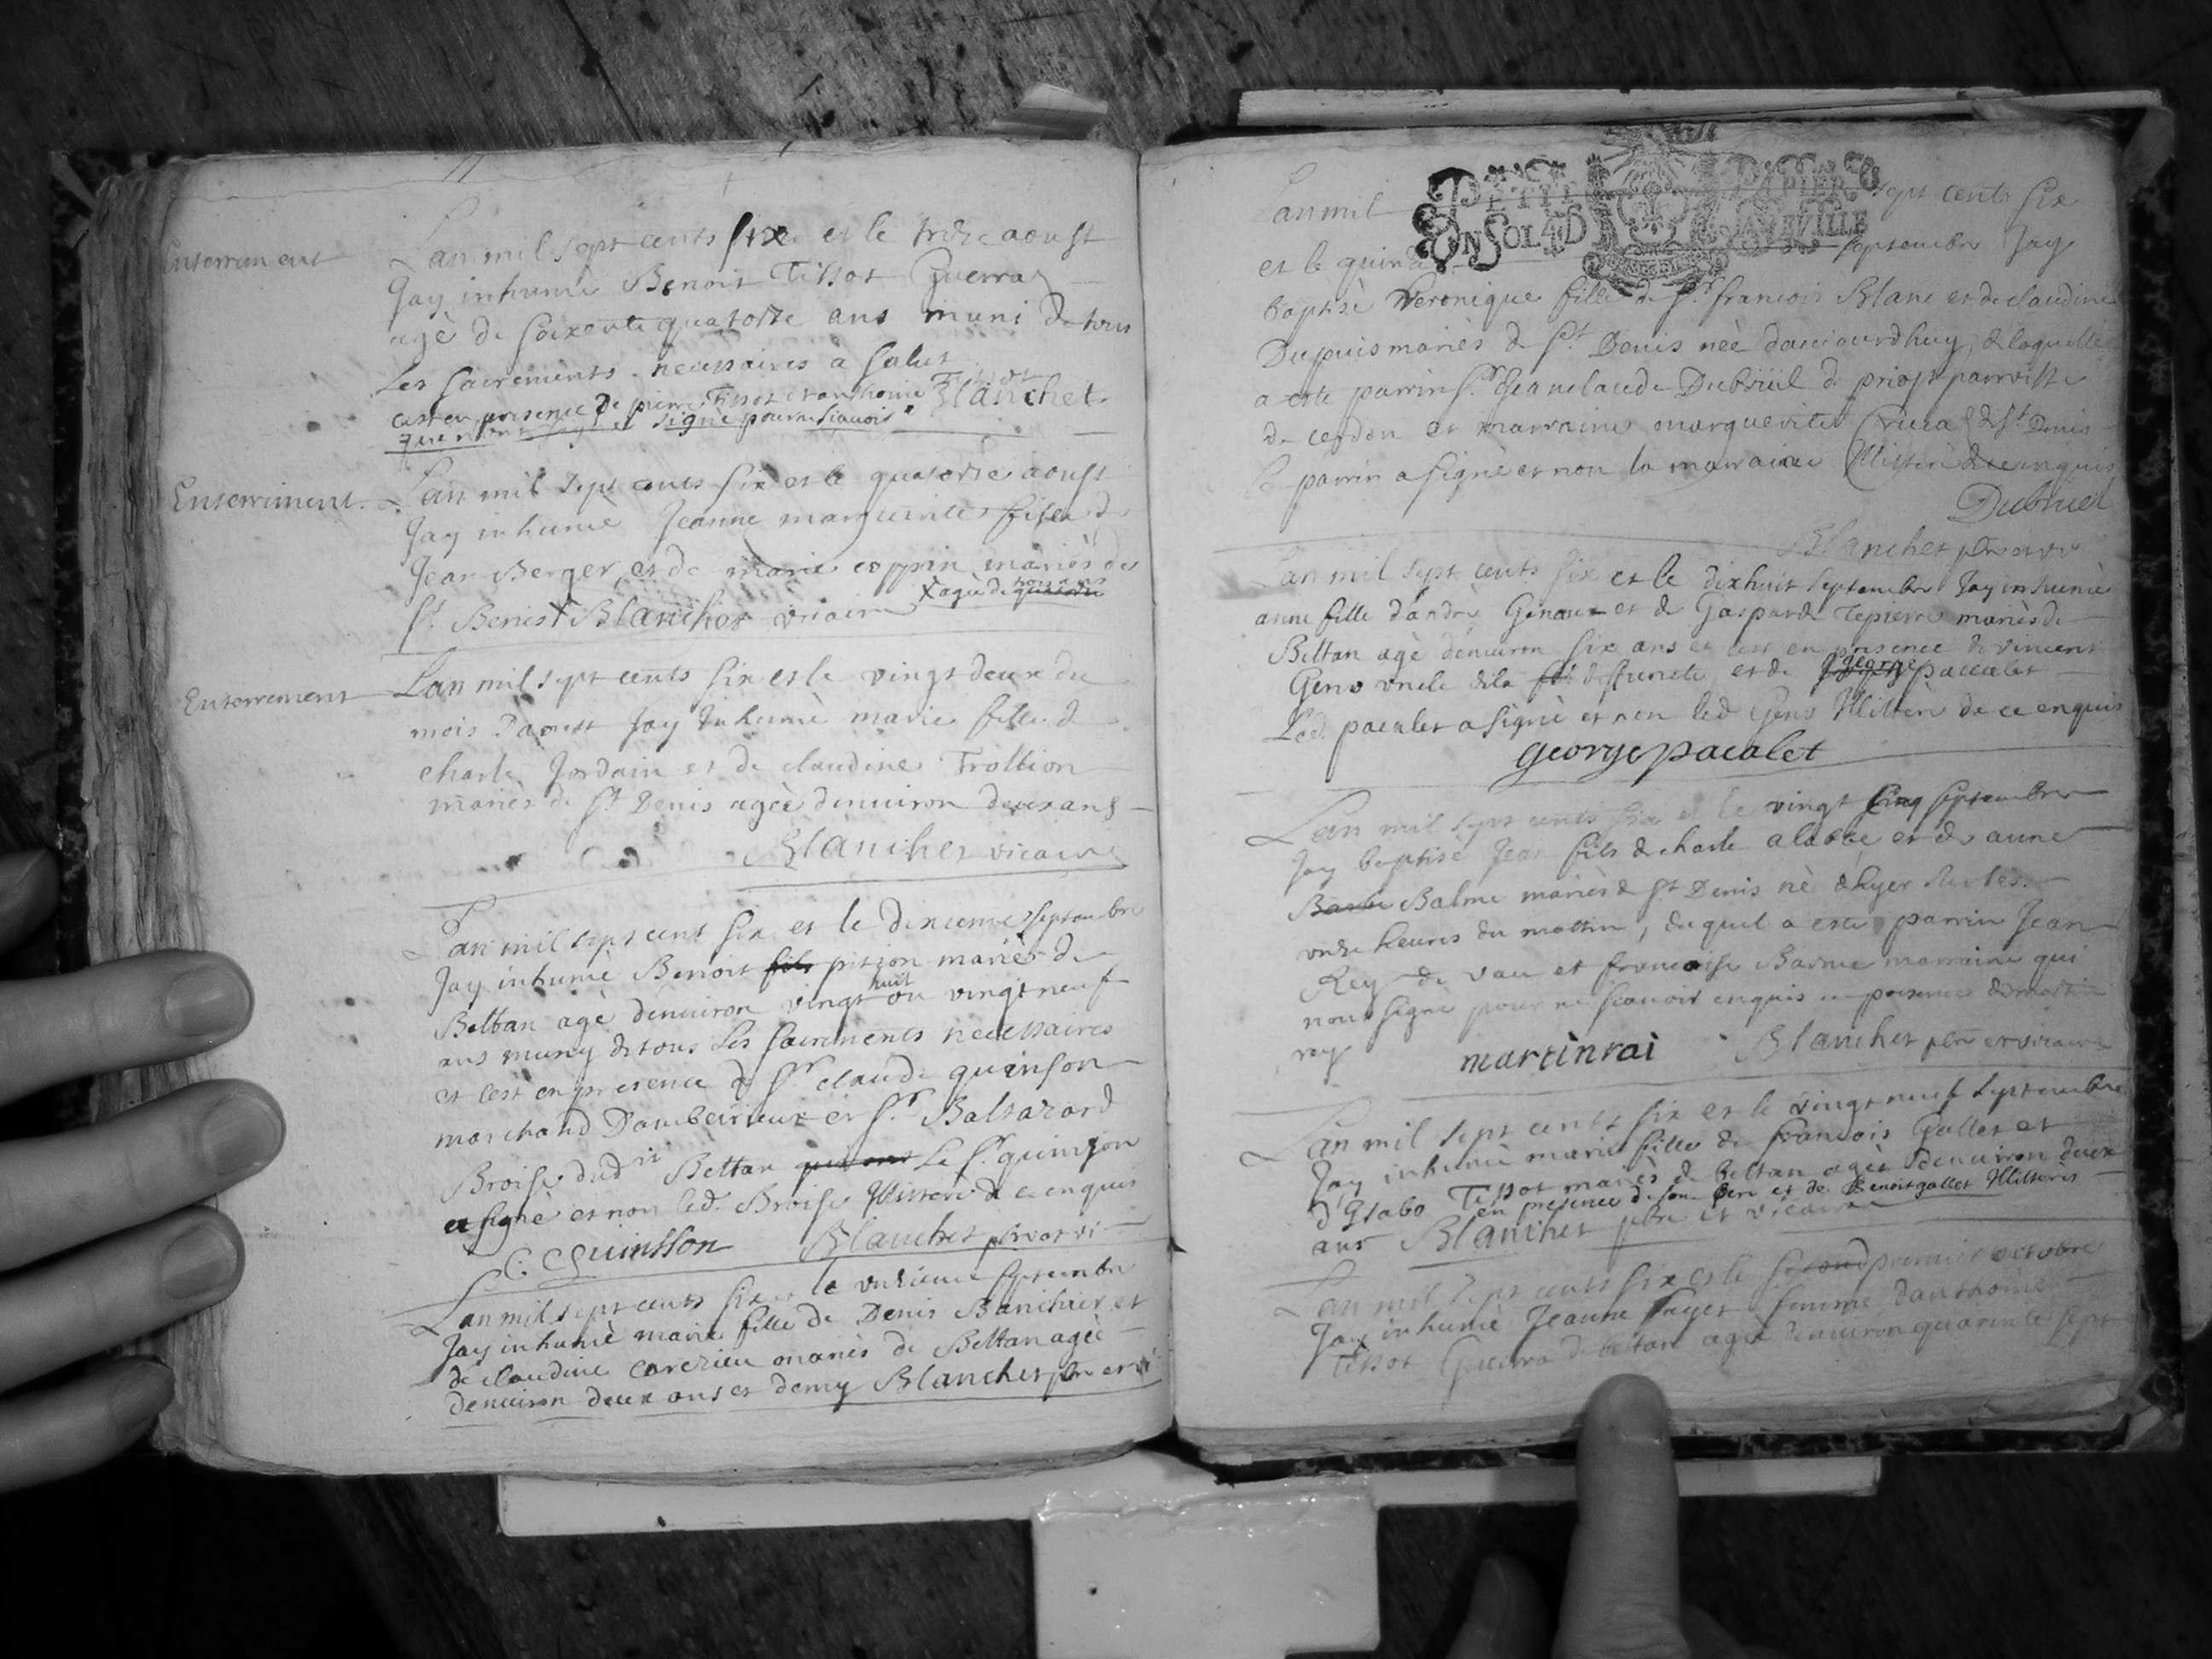 Enterrement
Lan mil sept cents six et le treize aoust
Jay inhumè Benoit Tissot Guerraz
agè de soixente quatorze ans muni de tous
Les sacrements necessaires a salut
cest en presence de pierre Tissot et anthoine Tissot
que nont signè pour ne sçavoir Blanchet
Enterriment
Lan mil sept cents six et le quatorze aoust
Jay inhumè Jeanne marguerite fille de
Jean Berger et de marie coppin mariès de
St. Denis + Blanchet vicaire + agèe de trois ans
Enterrement
Lan mil sept cents six et le vingt deux du
mois Daoust Jay Inhumè marie fille de
charle Jordain et de claudine Trollion
mariès de St. Denis agèe denuiron deux ans
Blanchet vicaire
Lan mil sept cent six et le dixieme septembre
Jay inhumè Benoit fils pition mariès de
Bettan agè denuiron vingt huit ou vingt neuf
ans muny de tous Les sacrements necessaires
et cest en presence de Sr. claude quinson
marchand Dambeirieux et Sr. Baltazard
Broise dud Bettan Le Sr. quinson
a signè et non led. Broise Illitterè de ce enquis
C. Quinsson Blanchet ptre et vi
Lan mil sept cents six et le unzieme septembre
Jay inhumè marie fille de Denis Banchier et
de claudine carerieu mariès de Bettan agèe
denuiron deux ans et demy Blanchet ptre et vi
PETIT PAPIER
UN SOL 4 D LA FEUILLE
Lan mil sept cents six
et le quinze septembre Jay
baptisè Veronique fille de Sr. francois Blanc et de claudine
Dupuis mariès de St. Denis nèe daujourdhuy, de laquelle
a este parrin Sr. Jean claude Dubreüil de priay parroisse
de cerdon et marraine marguerite de St. Denis
Le parrin a signè et non la marraine Illitterè de ce enquis
Dubruel
Blanchet ptre et vi
Lan mil sept cents six et le dixhuit septembre Jay inhumè
anne fille dandrè Genaux et de Gasparde Tepierre mariès de
Bettan agè denuiron six ans et cest en presence de vincent
Geno uncle de la deffuncte et de george paccalet
Led. pacalet a signè et non led Geno Illitterè de ce enquis
george pacalet
Lan mil sept cents six et le vingt cinq septembre
Jay baptisè Jean fils de charle alabbe et de anne
Barbe Balme mariès de St. Denis nè dhyer sur les
unze heures du mattin, duquel a este parrin Jean
Rey de vau et francoise Barme marraine qui
nont signè pour ne scauoir enquis en presence de martin
rey martin rai Blanchet ptre et vicaire
Lan mil sept cents six et le vingt neuf septembre
Jay inhumè marie fille de francois Gallet et
d'Isabo Tissot mariès de bettan agèe denuiron deux
ans en presence de son pere et de Benoit gallet Illitterès
Blanchet ptre et vicaire
Lan mil sept cents six et le second premier octobre
Jay inhumè Jeanne fayet femme danthoine
Tissot Guerra de bettan agèe denuiron quarante sept